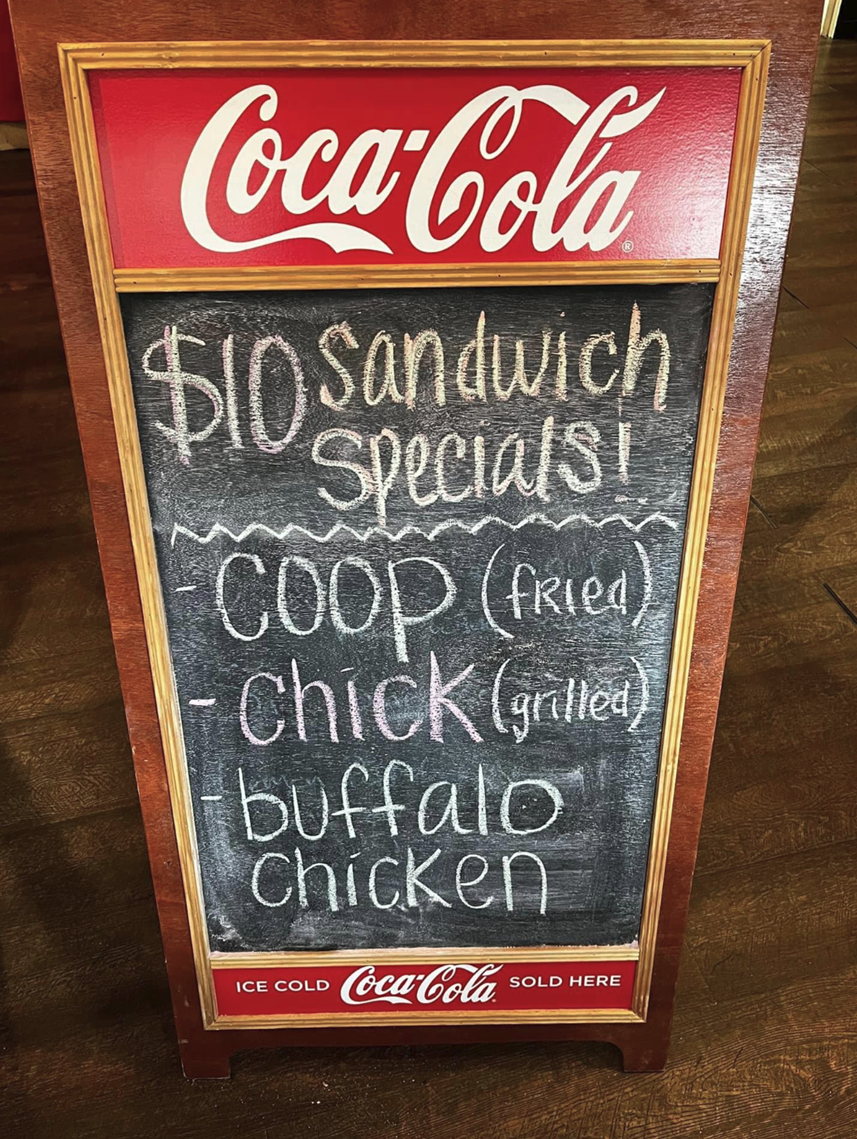 Coca-Cola®
$10 Sandwich
Specials!
- COOP (fRied)
- Chick (grilled)
- buffalo
chicken
ICE COLD Coca-Cola® SOLD HERE